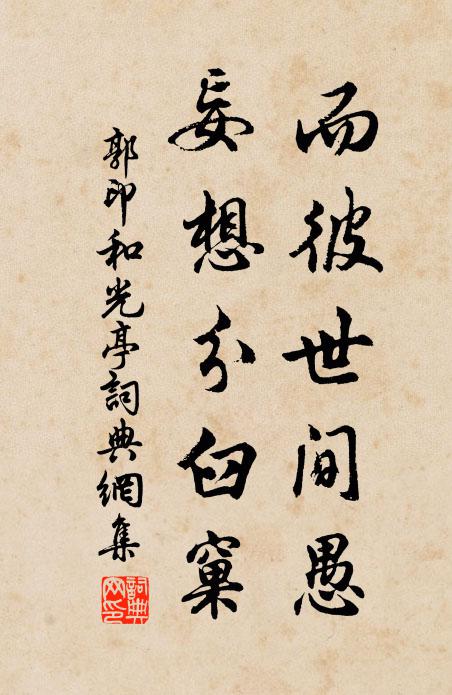 而彼世间愚
妄想分臼窠
郭印和光亭詞典網集
詞典